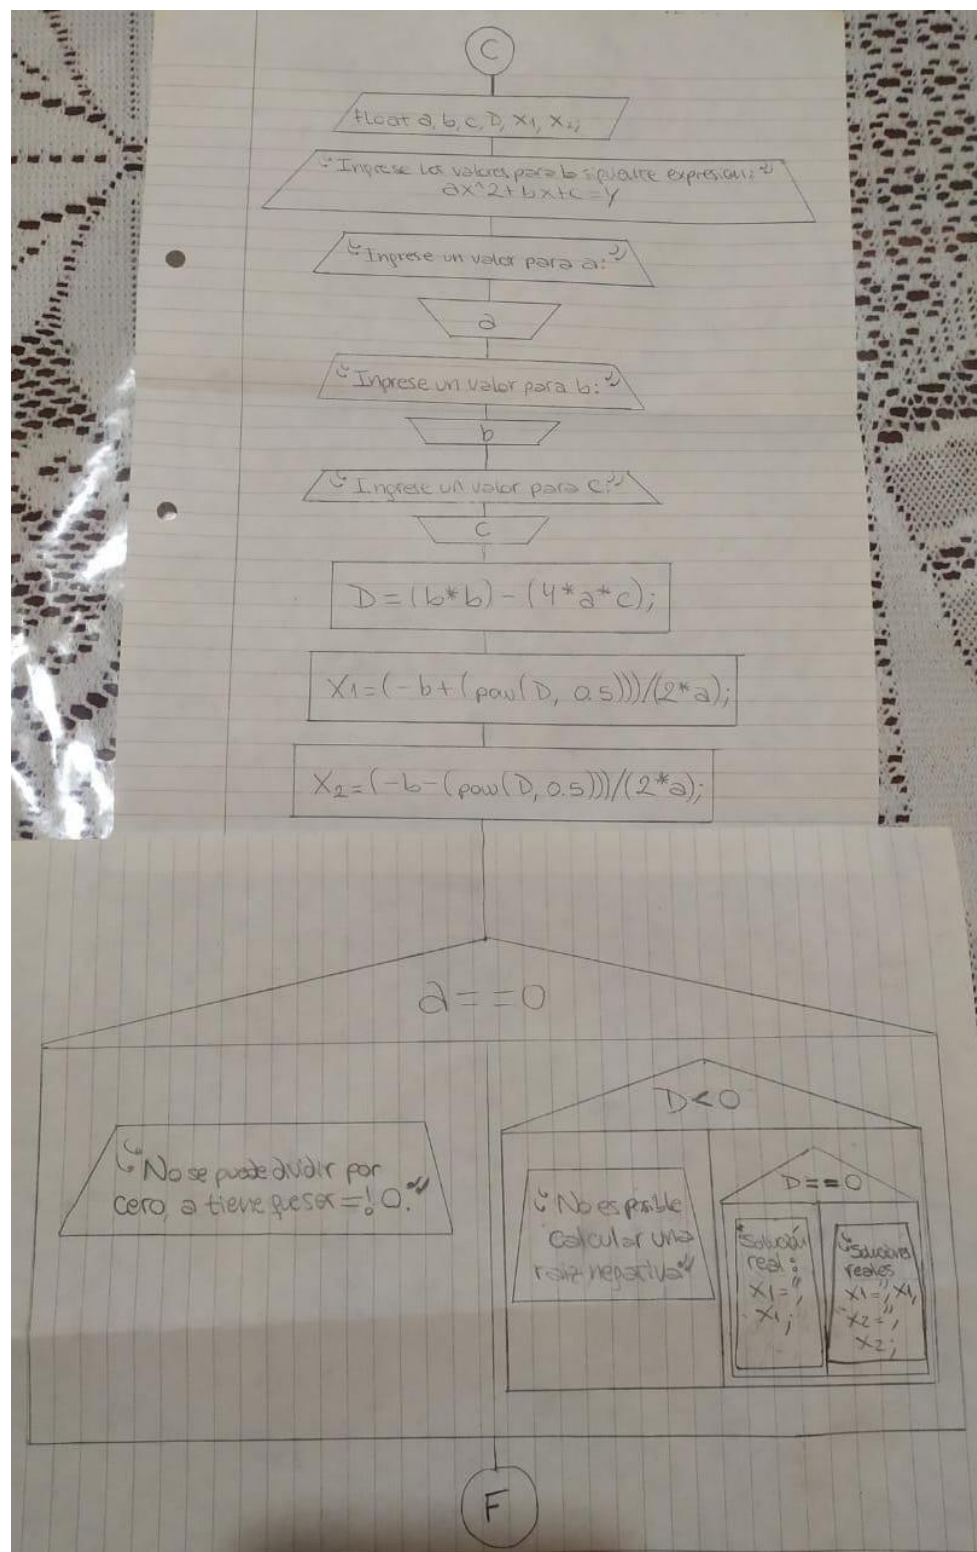 C
float a, b, c, D, X1, X2;
"Ingrese los valores para la siguiente expresion:"
ax^2+bx+c=y
"Ingrese un valor para a:"
a
"Ingrese un valor para b:"
b
"Ingrese un valor para c:"
c
D=(b*b)-(4*a*c);
X1=(-b+(pow(D, 0.5)))/(2*a);
X2=(-b-(pow(D, 0.5)))/(2*a);
a==0
"No se puede dividir por
cero, a tiene que ser =!0."
D<0
"No es posible
calcular una
raiz negativa"
D==0
"Solución
real:
X1=",
X1;
"Soluciones
reales
X1=", X1,
"X2=",
X2;
F